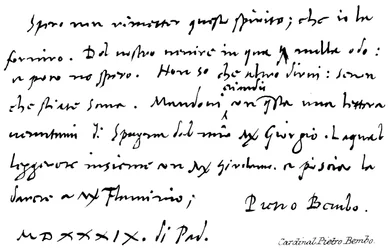 Spero non rimetter questo spirito; che io la
fornirò. Del nostro venire in qua nulla odo:
e poco ne spero. Non so che altro dirvi: senon
che stiate sana. Mandovi etiandio con questa una lettera
venutami di Spagna dal mio Mr Giorgio. La qual
leggerete insieme con Mr Girolamo. e poscia la
darete a Mr Flaminio;
Pietro Bembo.
MDXXXIX. di Pad.
Cardinal Pietro Bembo.